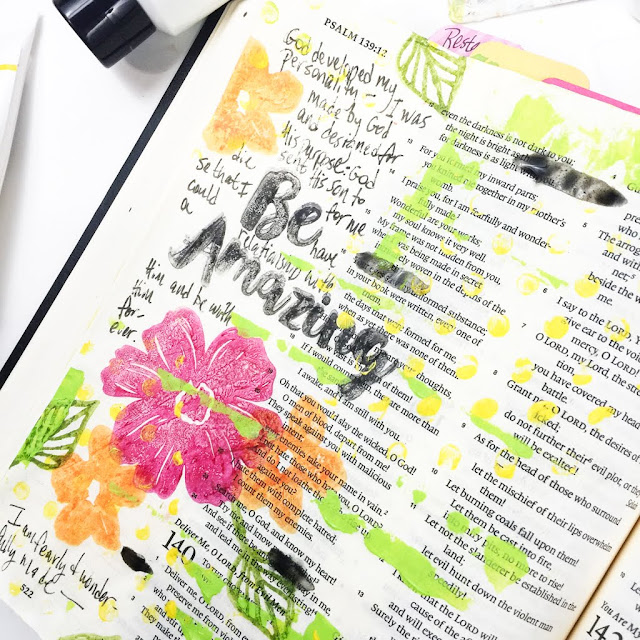 PSALM 139:12
Resto
God developed my
personality — I was
made by God
and designed for
His purpose. God
sent His son to
die for me
so that I
could have
a relationship with
Him and be with
Him
for-
ever.
Be
Amazing
I am fearly + wonder-
fully made —
522
even the darkness is not dark to you;
the night is bright as
for darkness is as light with
13 For you formed my inward parts;
you knitted me together in my mother's
womb.
14 I praise you, for I am fearfully and wonder-
fully made.
Wonderful are your works;
my soul knows it very well.
15 My frame was not hidden from you,
when I was being made in secret,
woven in the depths of the
16 unformed substance;
in your book were written, every one of
them,
the days that were formed for me,
when as yet there was none of them.
your thoughts,
of them!
18 If I would count them, they are more than
I awake, and I am still with you.
Oh that you would slay the wicked, O God!
O men of blood, depart from me!
They speak against you with malicious
your enemies take your name in vain.
hate those who hate you, O LORD?
loathe those
against you?
hate them with complete hatred;
I count them my enemies.
me, O God, and know my heart!
and know
And see
and lead me in the way everlasting!
140
Deliver Me, O LORD, from
To
Deliver me, O LORD, from
who preserve me from
They make the
6 I say to the LORD, You
give ear to the voice
mercy, O LORD
7 O LORD, my Lord, the
tion,
you have covered my head
battle.
8 Grant not, O LORD, the desires of
do not further their evil plot, or the
will be exalted!
9 As for the head of those who surround
let the mischief of their lips overwhelm
them!
10 Let burning coals fall upon them!
Let them be cast into fire,
into miry pits, no more to rise!
11 Let not the slanderer be established in the
land;
let evil hunt down the violent man
speedily!
12 I know that the LORD
cause of the
and will execute
13 Surely the
The arrog
and with
net;
beside the
me.
You Are M
142